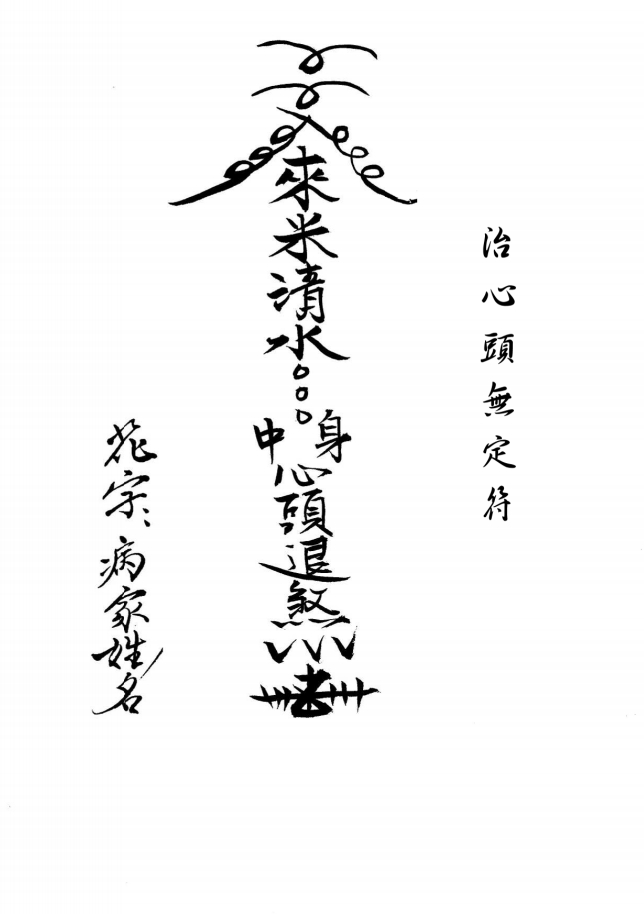 治心頭無定符
來米清水
○○○
身中
心頭退煞
花字:病家姓名